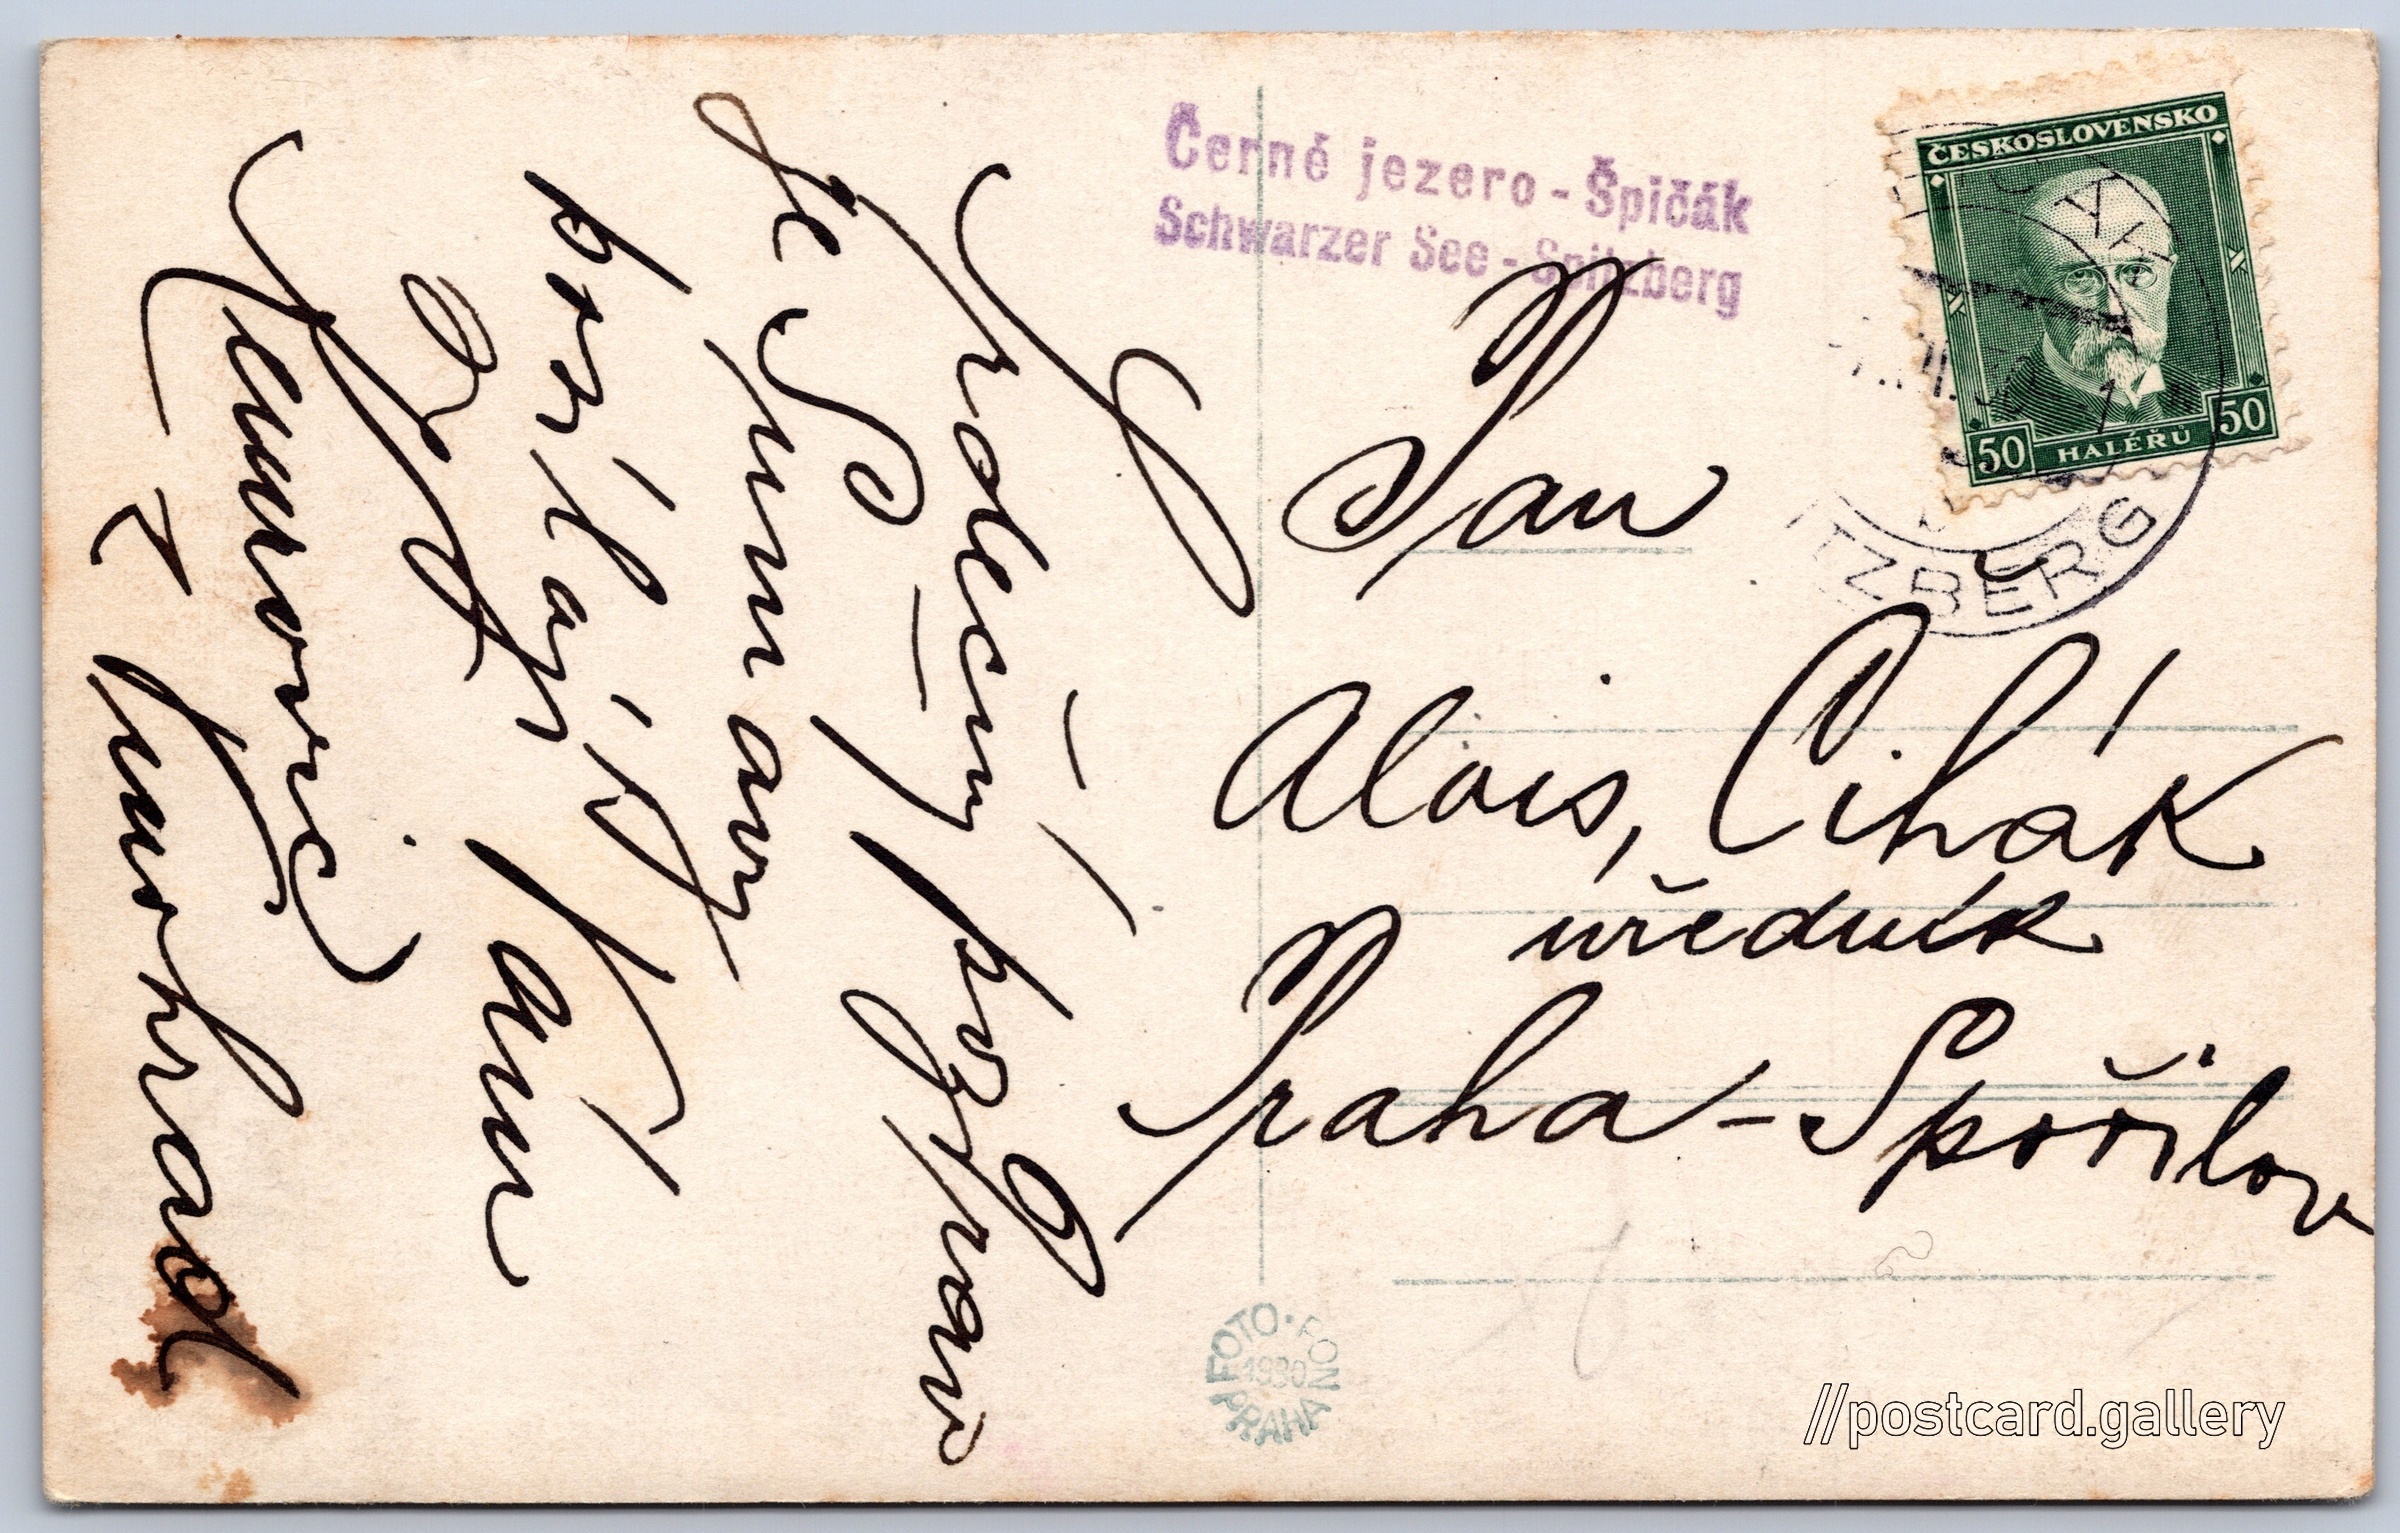 Srdečný pozdrav
ze Šumavy
posílají
Vám
z Vinohrad
Černé jezero - Špičák
Schwarzer See - Spitzberg
ČESKOSLOVENSKO
50 HALÉŘŮ 50
TZBERG
Pan
Alois Čihák
úředník
Praha - Spořilov
FOTO · FON
1930
PRAHA
//postcard.gallery